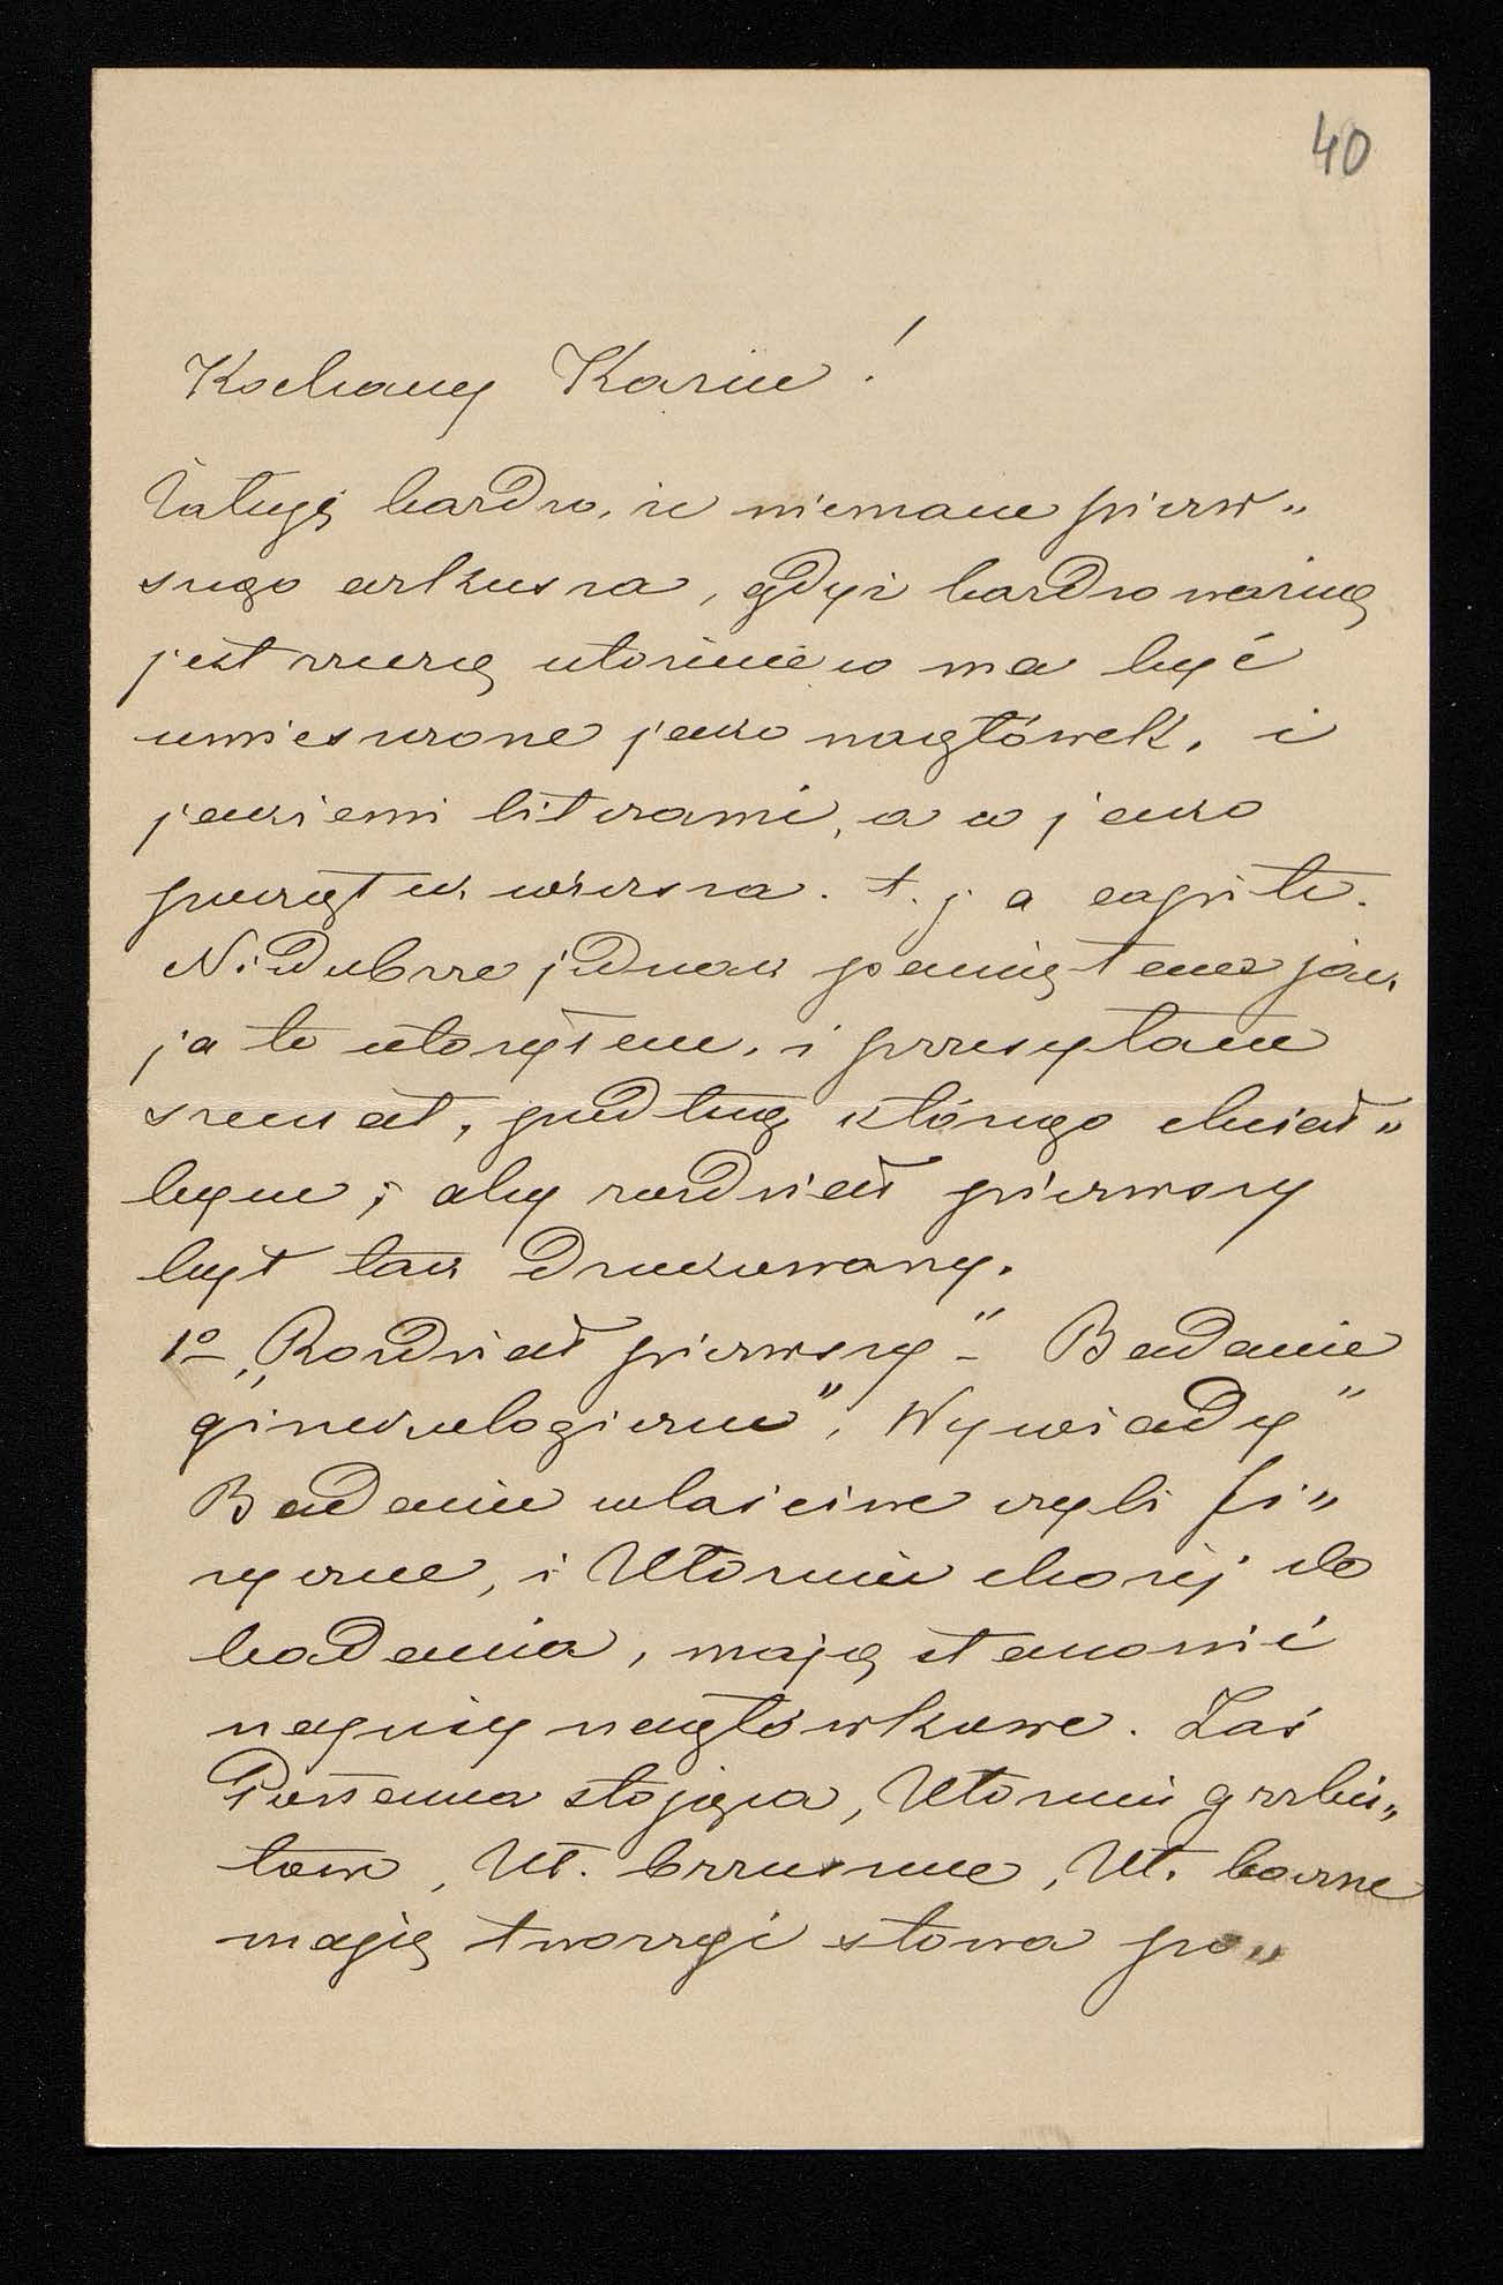 40
Kochany Kaziu!
Żałuję bardzo, że niemam pierw„
szego arkusza, gdyż bardzo ważną
jest rzeczą ułożenie co ma być
umieszczone jako nagłówek, i
jakiemi literami, a co jako
początek wiersza. t. j a capite.
Niedobrze jednak pamiętam jak
ja to ułożyłem, i przesyłam
szemat, podług którego chciał„
bym, aby rozdział pierwszy
był tak drukowany.
1º „Rozdział pierwszy" – Badanie
ginekologiczne", Wywiady"
Badanie właściwe czyli fi„
zyczne, i Ułożenie chorej do
badania, mają stanowić
napisy nagłówkowe. Zaś
Postawa stojąca, Ułożenie grzbie„
towe, Uł. brzuszne, Uł. boczne
mają tworzyć słowa po„